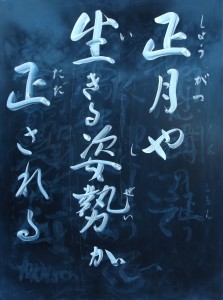 正月や
生きる姿勢が
正される
しょうがつ
い
しせい
ただ